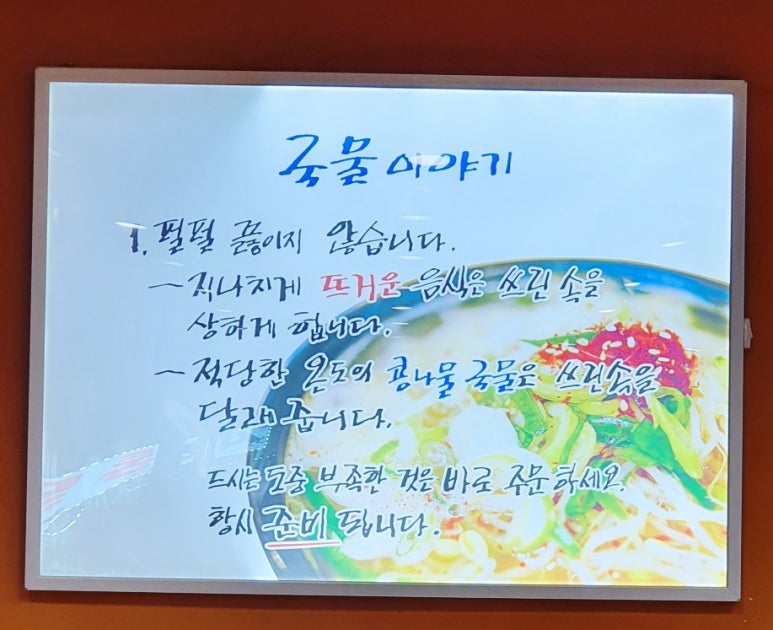 국물이야기
1. 펄펄 끓이지 않습니다.
~ 지나치게 뜨거운 음식은 쓰린 속을
상하게 합니다.
~ 적당한 온도의 콩나물 국물은 쓰린속을
달래 줍니다.
드시는 도중 부족한 것은 바로 주문 하세요.
항시 준비 됩니다.